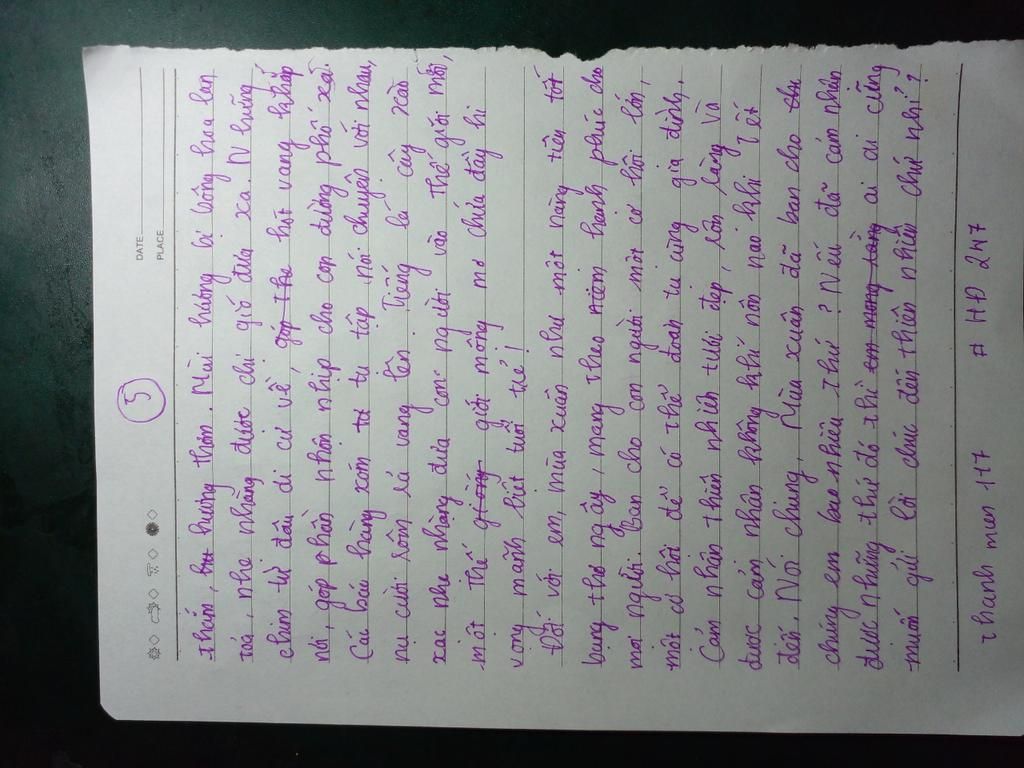 DATE
PLACE
5
thắm, hương thơm. Mùi hương bị bông hoa lan
toả, nhẹ nhàng được chị gió đưa xa. Những
chim từ đâu di cư về, góp the hót vang khắp
nơi, góp phần nhộn nhịp cho con đường phố xá.
Các bác hàng xóm tơ tụ tập nói chuyện với nhau,
nụ cười rôm rả vang lên. Tiếng lá cây xào
xạc nhẹ nhàng đưa con người vào thế giới mới,
một thế giống giới mộng mơ chứa đầy hi
vọng mãnh liệt tươi trẻ!
Đối với em, mùa xuân như một nàng tiên tốt
bụng thơ ngây, mang theo niềm hạnh phúc cho
mọi người. Ban cho con người một cơ hội lớn,
một cơ hội để có thể đoàn tụ cùng gia đình,
Cảm nhận thiên nhiên tươi đẹp, sâu lắng và
được cảm nhận không khí nôn nao khi Tết
đến. Nói chung, Mùa xuân đã ban cho thu
chúng em bao nhiêu thứ? Nếu đã cảm nhận
được những thứ đó thì em mong rằng ai ai cũng
muốn gửi lời chúc đến thiên nhiên chứ nhỉ?
thanh men 117 # HĐ 247